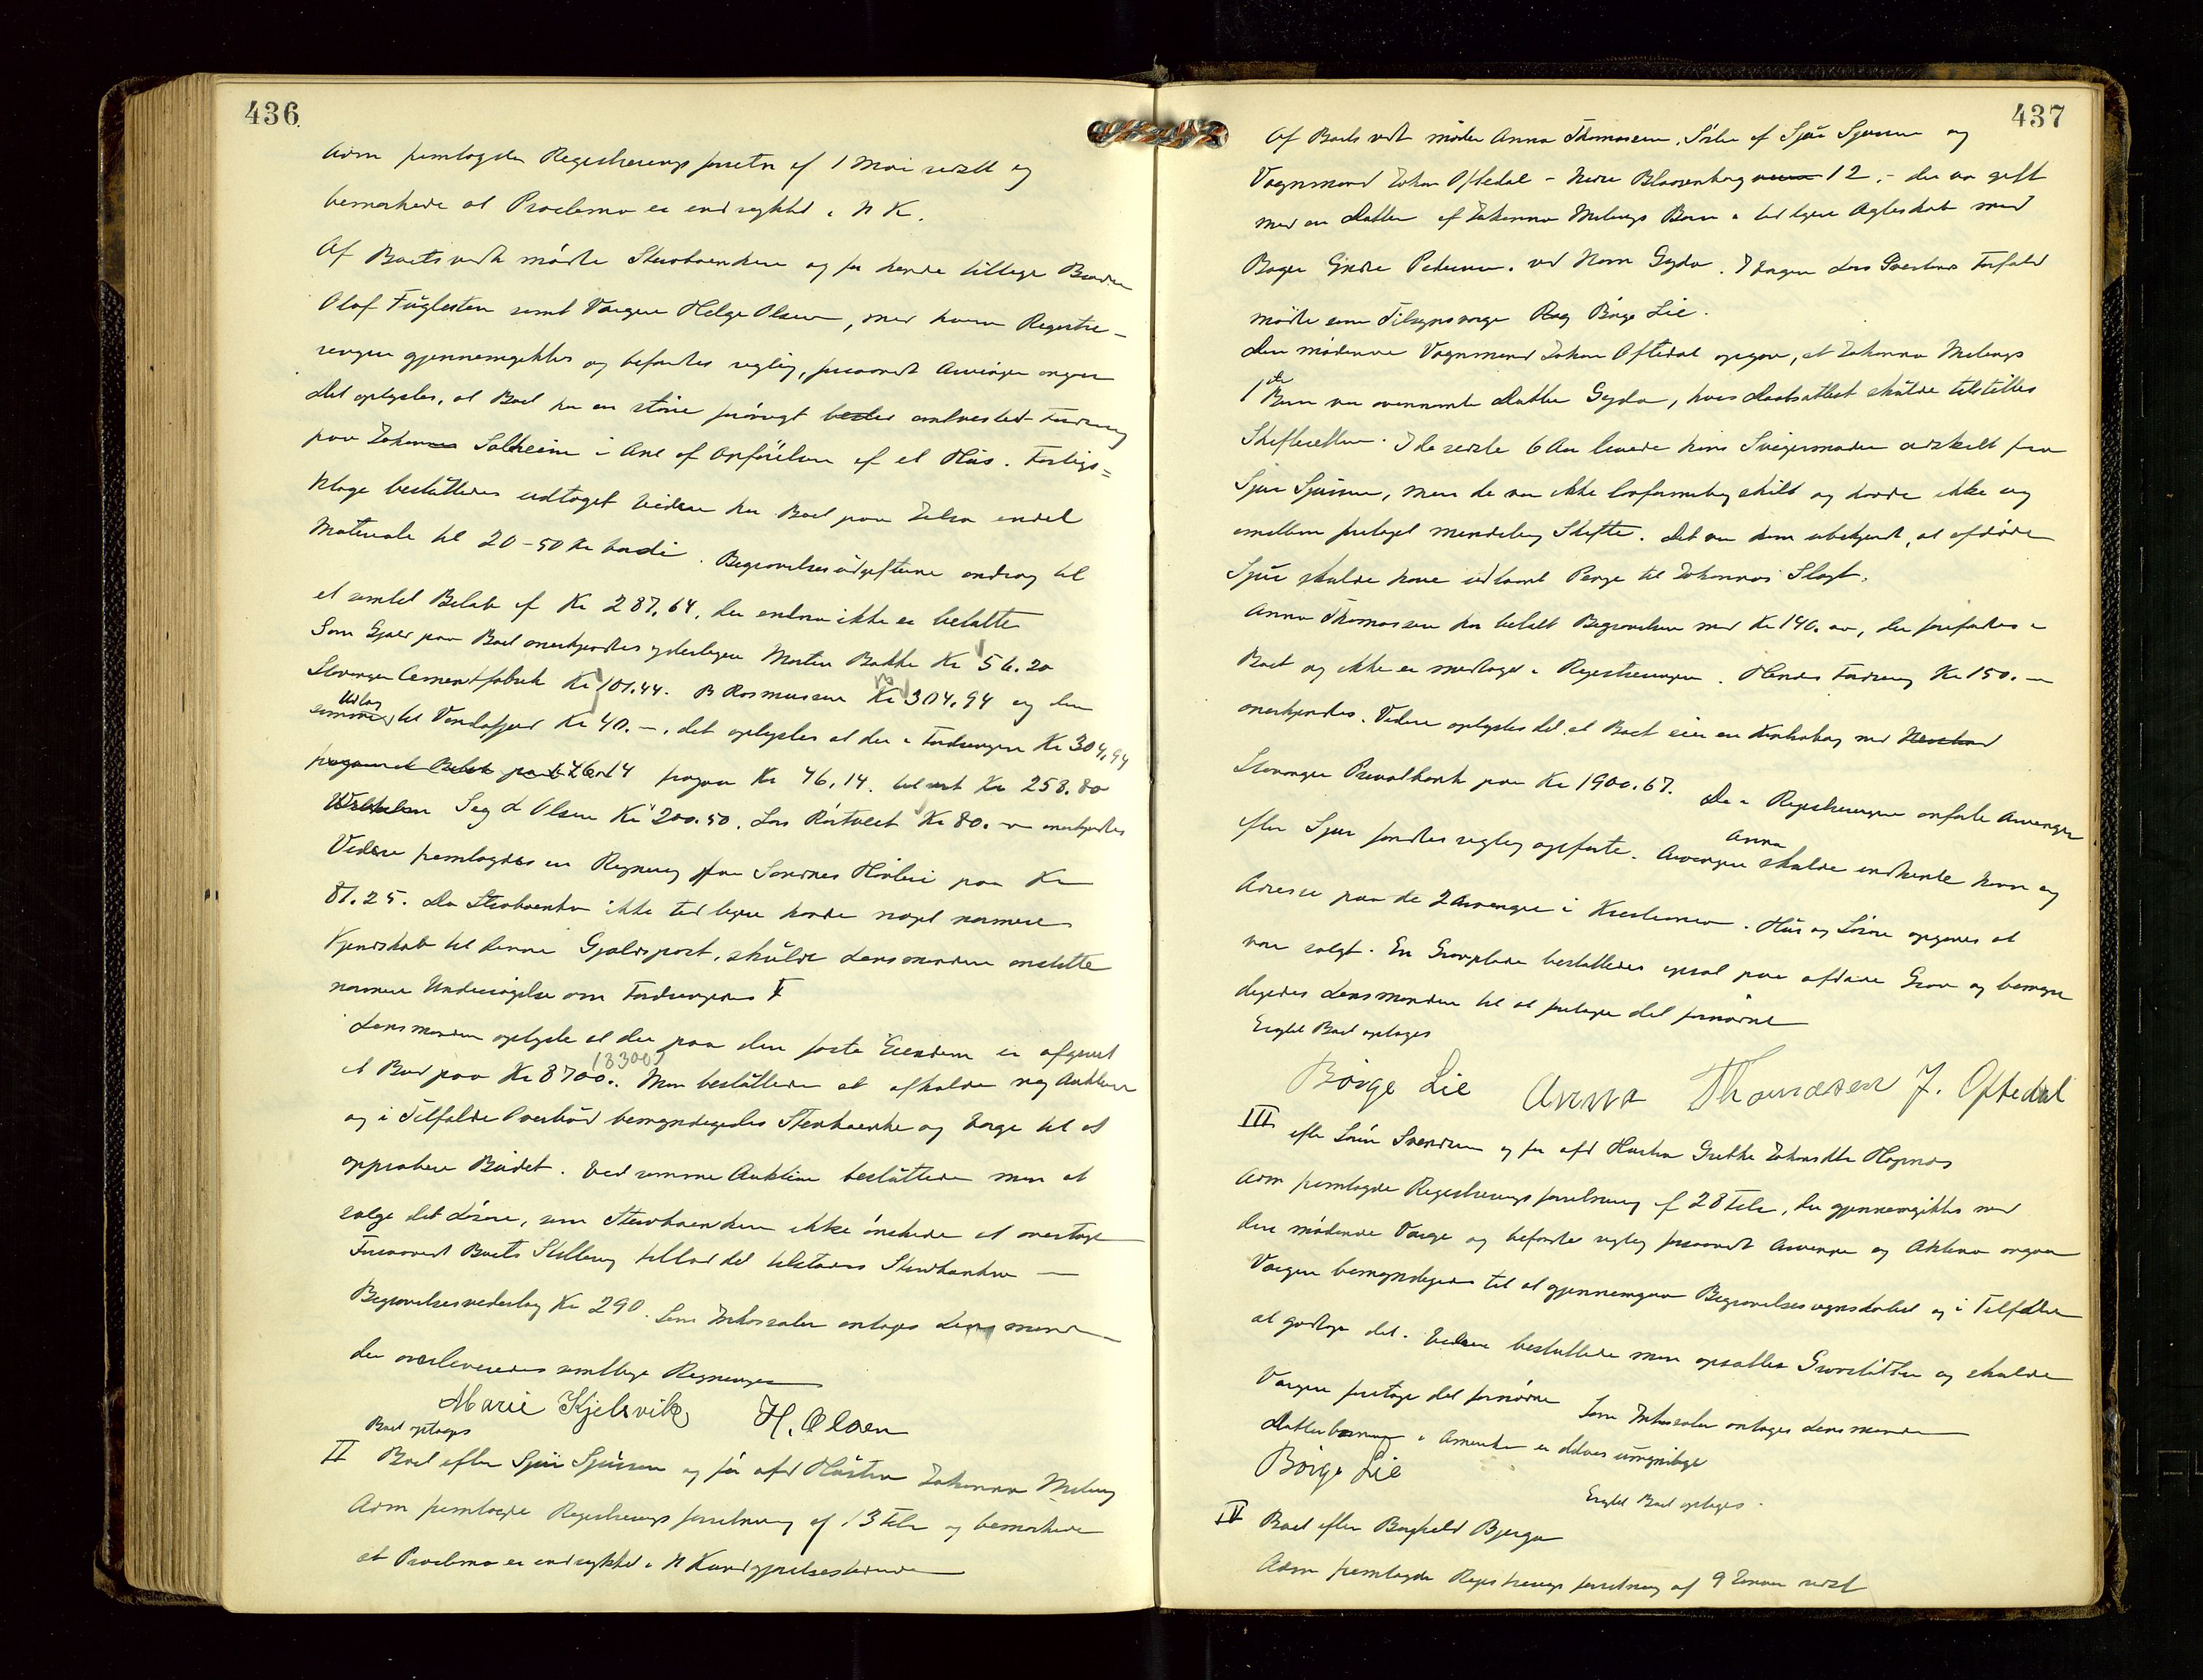 436
Adm fremlagde Registreringsforretn af 1 Mai sidstl og
bemærkede at Proclama er indrykket i N K.
Af Boets vedk mødte Stervboenken og for hende tillige Broder
Olaf Fuglesten samt Værgen Helge Olsen, med hvem Registre-
ringen gjennemgikkes og befandtes rigtig, forsaavidt Arvinger angaar
Det oplystes, at Boet har en større forøvrigt omtvistet Fordring
paa Solheim i Anl af Opførelsen af et Hus. Forligs=
klage besluttedes udtaget Videre har Boet paa Jelsa endel
Materiale til 20-50 Kr Værdi. Begravelsesudgifterne androg til
et samlet Beløb af Kr 287.64. der endnu ikke er betalte
Som Gjæld paa Boet anerkjendtes yderligere Morten Bakke Kr 56.20
Stavanger Cementfabrik Kr 101.44. B Rasmussen Kr 304.94 og den
Udlæg til Vandafjord Kr 40.-. det oplystes at der i Fordringen Kr 304,94
fragaar Kr 46.14. til rest Kr 258.80
Sag d Olsen Kr 200.50. Lars Røstveit Kr 80.- anerkjendtes
Videre fremlagdes en Regning fra Sandnes Høvleri paa Kr
81.25. Da Stervboenken ikke tidligere havde noget nærmere
Kjendskab til denne Gjældspost, skulde Lensmanden anstille
nærmere Undersøgelse om Fordringens
Lensmanden oplyste at der paa den faste Eiendom er afgivet
et Bud paa Kr 8700.. (8300) Man besluttede at afholde ny Auktion
og i Tilfælde Overbud bemyndigedes Stervboenke og Værge til at
approbere Budet. Ved samme Auktion besluttede man at
sælge det Løsøre, som Stervboenken ikke ønskede at overtage
Forsaavidt Boets Stilling tillod det tilstodes Stervboenken
Begravelsesvederlag Kr 290. Som Inkassator antages Lensmanden
der overleveredes samtlige Regninger
Marie Kjelsvik H. Olsen
Boet optages
II Boet efter Sjur Sjursen og før afd Hustru Johanna Meling
Adm fremlagde Registreringsforretning af 13 Febr og bemærkede
at Proclama er indrykket i N Kundgjørelsestidende
437
Af Boets vedk mødte Anna Thomassen, Søster af Sjur Sjursen og
Vognmand Johan Oftedal - Nedre Blaasenborg 12.- der var gift
med en Datter af Johanna Melings Barn i tidligere Ægteskab med
Bager Endre Pedersen. ved Navn Gyda. I Anledn Lars Forfald
mødte som Tilsynsværge Børge Lie.
Den mødende Vognmand Johan Oftedal opgav, at Johanna Melings
1ste Barn var ovennævnte Datter Gyda, hvis Daabsattest skulde tilstilles
Skifteretten. I de sidste 6 Aar levede hans Svigermoder adskilt fra
Sjur Sjursen, men de var ikke lovformelig skilt og havde ikke sig
imellem foretaget mindelig Skifte. Det var ham ubekjendt, at afdøde
Sjur skulde have udlaant Penge til Johannas Slægt.
Anna Thomassen har betalt Begravelsen med Kr 140.-, der forefandtes i
Boet og ikke er medtaget i Registreringen. Hendes Fordring Kr 150.-
anerkjendtes. Videre oplystes det at Boet eier en Bankbog ved
Stavanger Privatbank paa Kr 1900.67. De i Registreringen anførte Arvinger
efter Sjur fandtes rigtig opførte. Arvingen Anna skulde indhente Navn og
Adresse paa de 2 Arvinger i Kristiania. Hus og Løsøre opgaves at
være solgt. En Gravplade besluttedes opsat paa afdødes Grav og bemyn-
digedes Lensmanden til at foretage det fornødne
Ergtet Boet optages
Børge Lie Anna Thomasen J. Oftedal
III efter Søren Svendsen og før afd Hustru Grethe Johansdtr Høgnæs
Adm fremlagde Registreringsforretning af 28 Febr, der gjennemgikkes med
den mødende Værge og befandtes rigtig forsaavidt Arvinger og Aktiva angaar
Værgen bemyndiges til at gjennemgaa Begravelsesregnskabet og i Tilfælde
at godtage det. Videre besluttede man opsættes Gravstøtte og skulde
Værgen foretage det fornødne Som Inkassator antages Lensmanden
Datterbørnene i Amerika er delvis umyndige
Børge Lie
Ergtet Boet optages.
IV Boet efter Borghild Bjerga
Adm fremlagde Registreringsforretning af 9 Januar sidstl